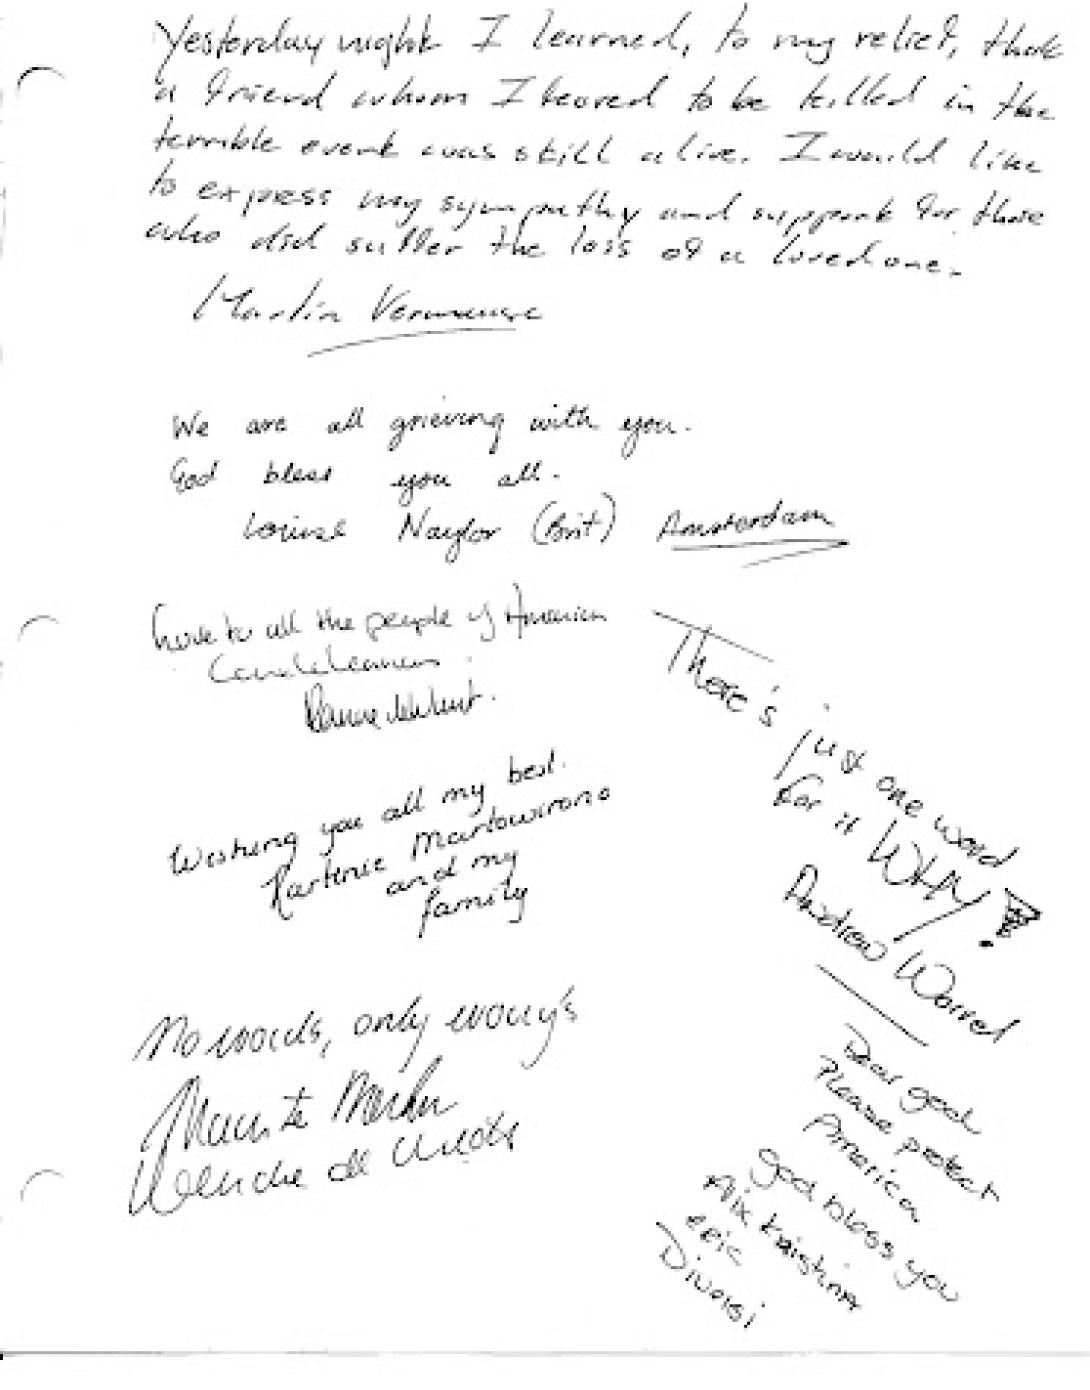 Yesterday night I learned, to my relief, that
a friend whom I feared to be killed in the
terrible event was still alive. I would like
to express my sympathy and support for those
who did suffer the loss of a loved one.
Martin
We are all grieving with you.
God bless you all.
Louise Naylor (Brit) Amsterdam
Love to all the people of America
Condoleances
Wishing you all my best.
Martowirono
and my
family
No words, only worry's
There's
just one word
for it WHY?
Andrew Worrel
Dear god
Please protect
America
god bless you
Alix Krishna
eric